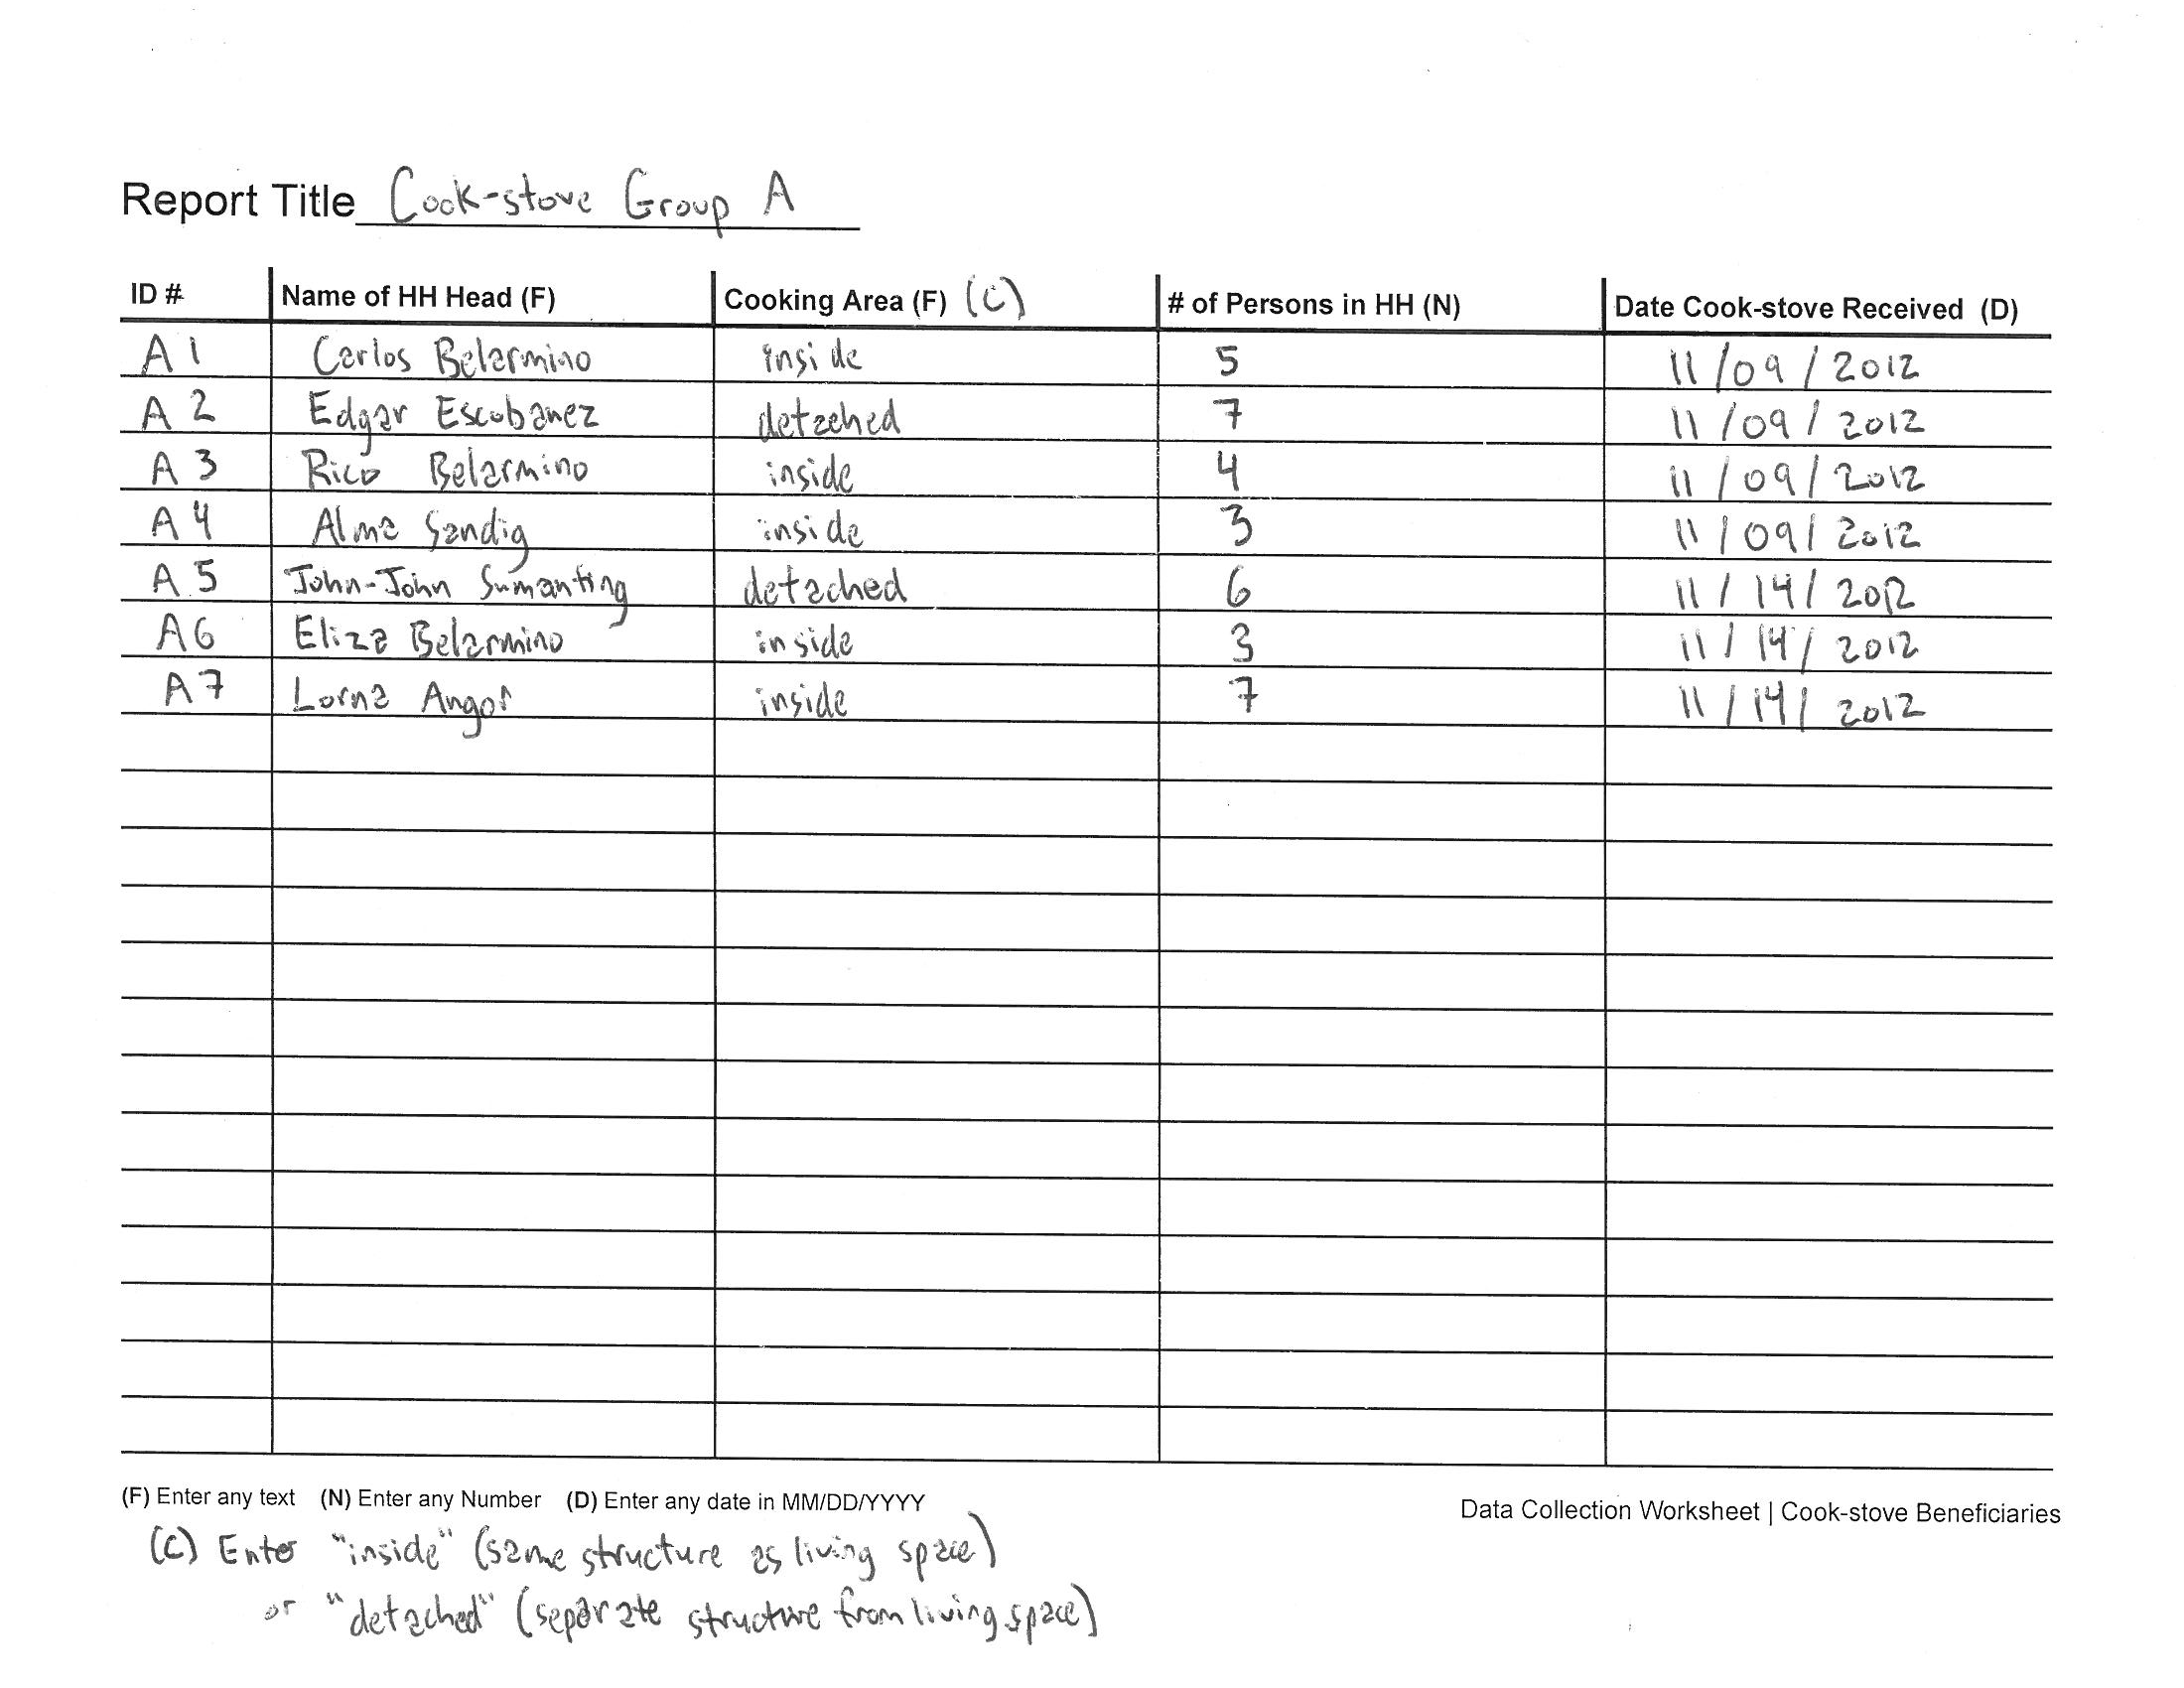 Report Title Cook-stove Group A
ID # Name of HH Head (F) Cooking Area (F) (C) # of Persons in HH (N) Date Cook-stove Received (D)
A1 Carlos Belarmino inside 5 11/09/2012
A2 Edgar Escobanez detached 7 11/09/2012
A3 Rico Belarmino inside 4 11/09/2012
A4 Alma Sandig inside 3 11/09/2012
A5 John-John Sumanting detached 6 11/14/2012
A6 Eliza Belarmino inside 3 11/14/2012
A7 Lorna Angor inside 7 11/14/2012
(F) Enter any text (N) Enter any Number (D) Enter any date in MM/DD/YYYY
Data Collection Worksheet | Cook-stove Beneficiaries
(C) Enter "inside" (same structure as living space)
or "detached" (separate structure from living space)